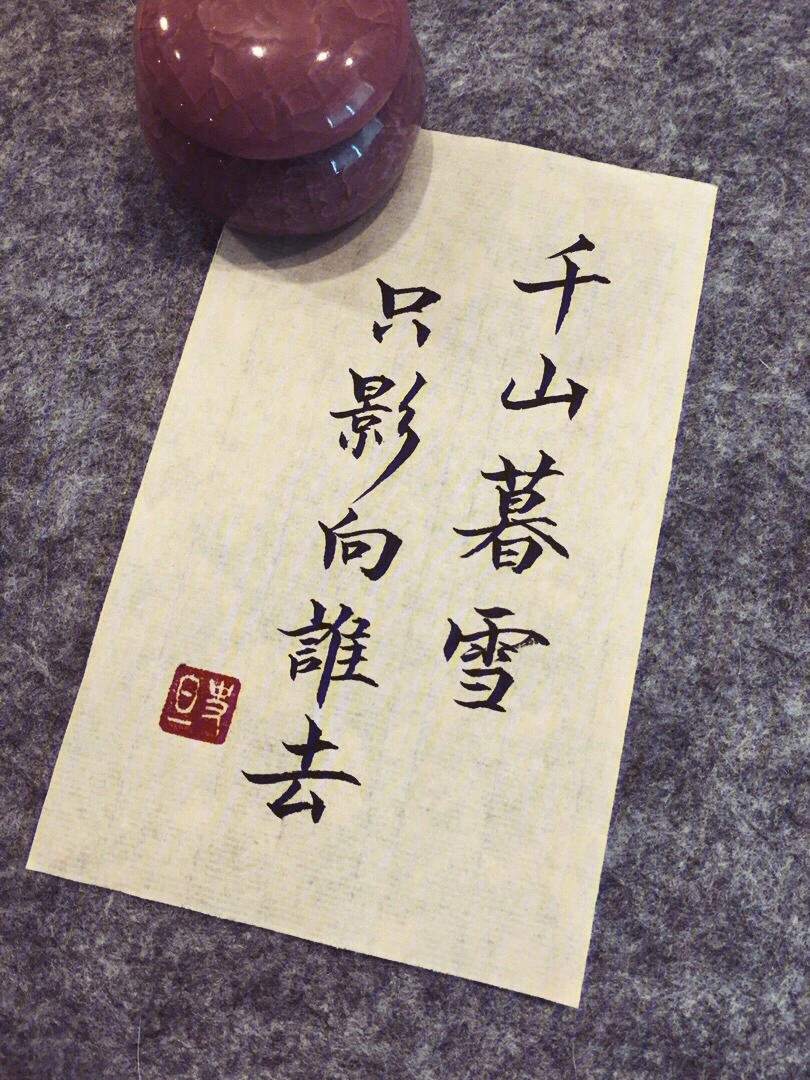 千山暮雪
只影向誰去
史旦